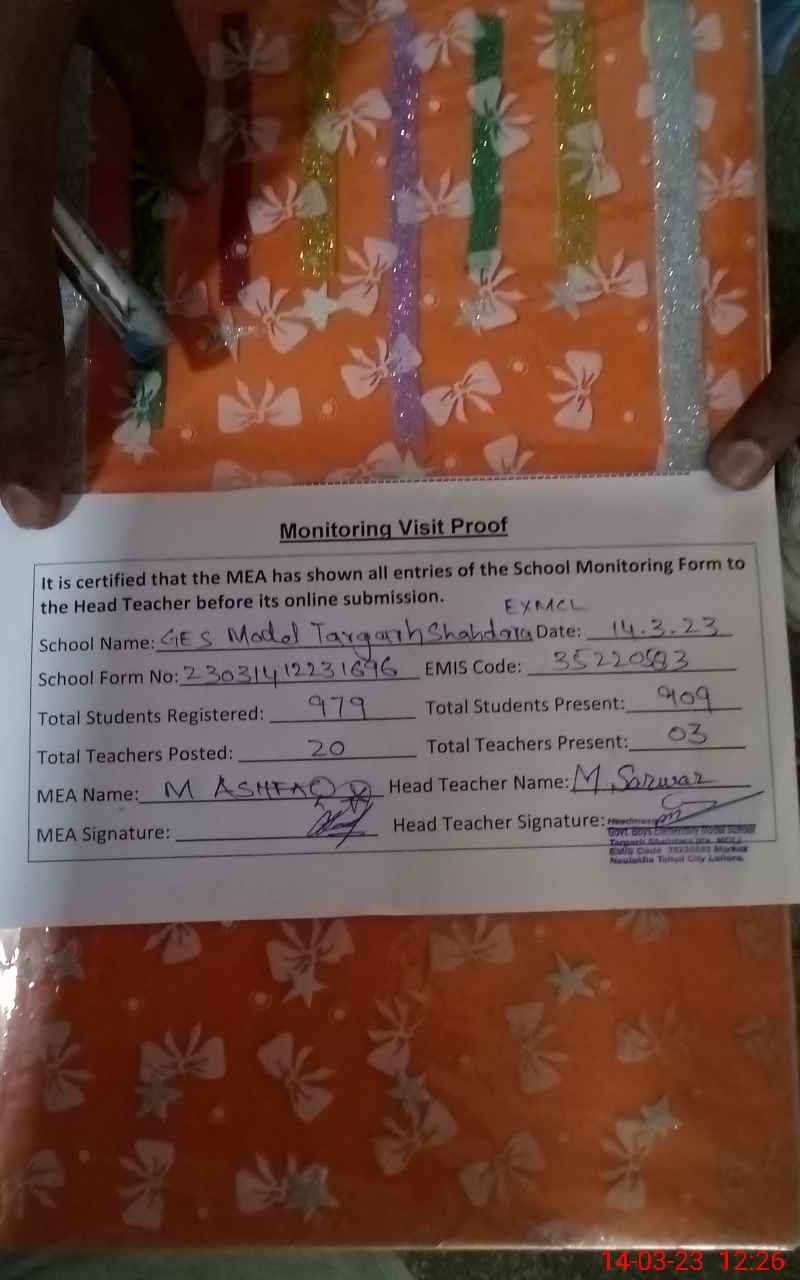 Monitoring Visit Proof
It is certified that the MEA has shown all entries of the School Monitoring Form to
the Head Teacher before its online submission.
EXMCL
School Name: GES Model Targarh Shahdara Date: 14.3.23
School Form No: 23031412231696 EMIS Code: 35220583
Total Students Registered: 979 Total Students Present: 909
Total Teachers Posted: 20 Total Teachers Present: 03
MEA Name: M ASHFAQ Head Teacher Name: M Sarwar
MEA Signature: Head Teacher Signature:
Govt. Boys Elementary Model School
EMIS Code Markaz
Naulakha Tehsil City Lahore.
14-03-23 12:26